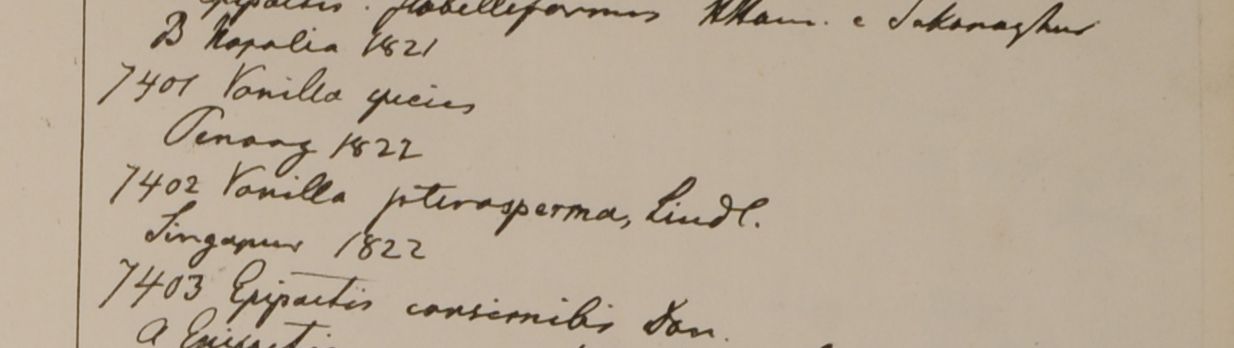 Epipactis. flabelliformis HHam. e Sukanaghur
B Napalia 1821
7401 Vanilla species
Penang 1822
7402 Vanilla pterosperma, Lindl.
Singapur 1822
7403 Epipactis consimilis Don.
a Epipactis